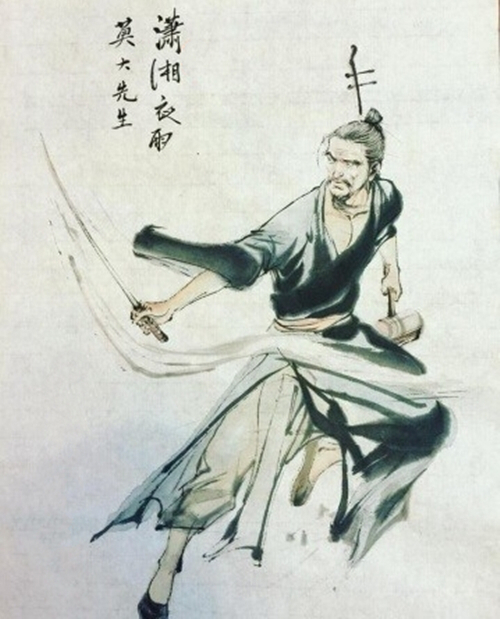 瀟湘夜雨
莫大先生